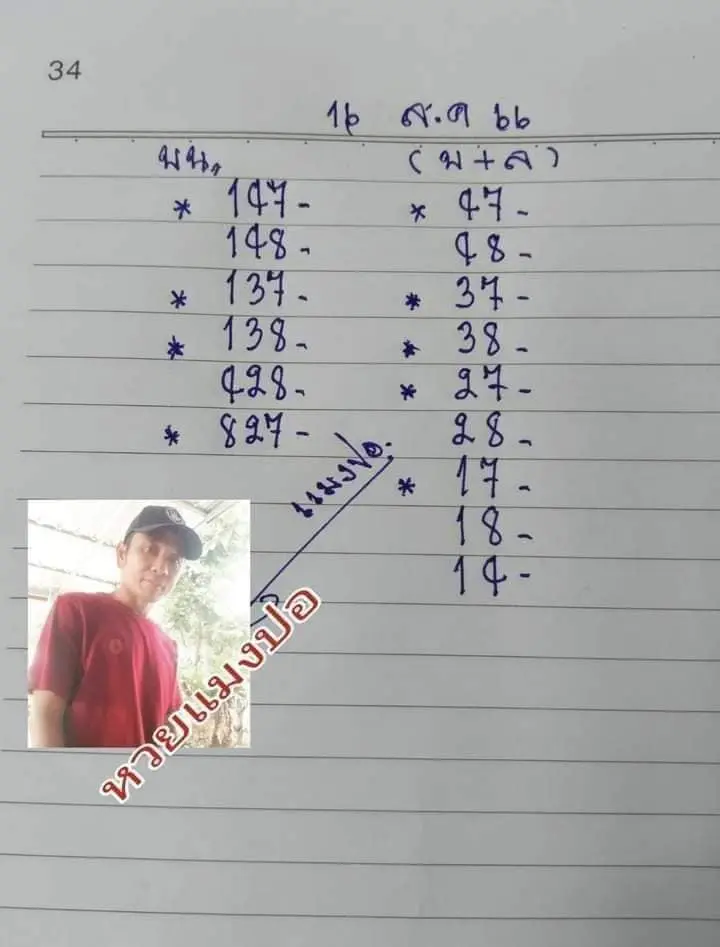 34
16 ส.ค 66
บน, (บ+ล)
* 147- * 47-
148- 48-
* 137- * 37-
* 138- * 38-
428- * 27-
* 827- 28-
แมงปอ. * 17-
18-
14-
หวยแมงปอ